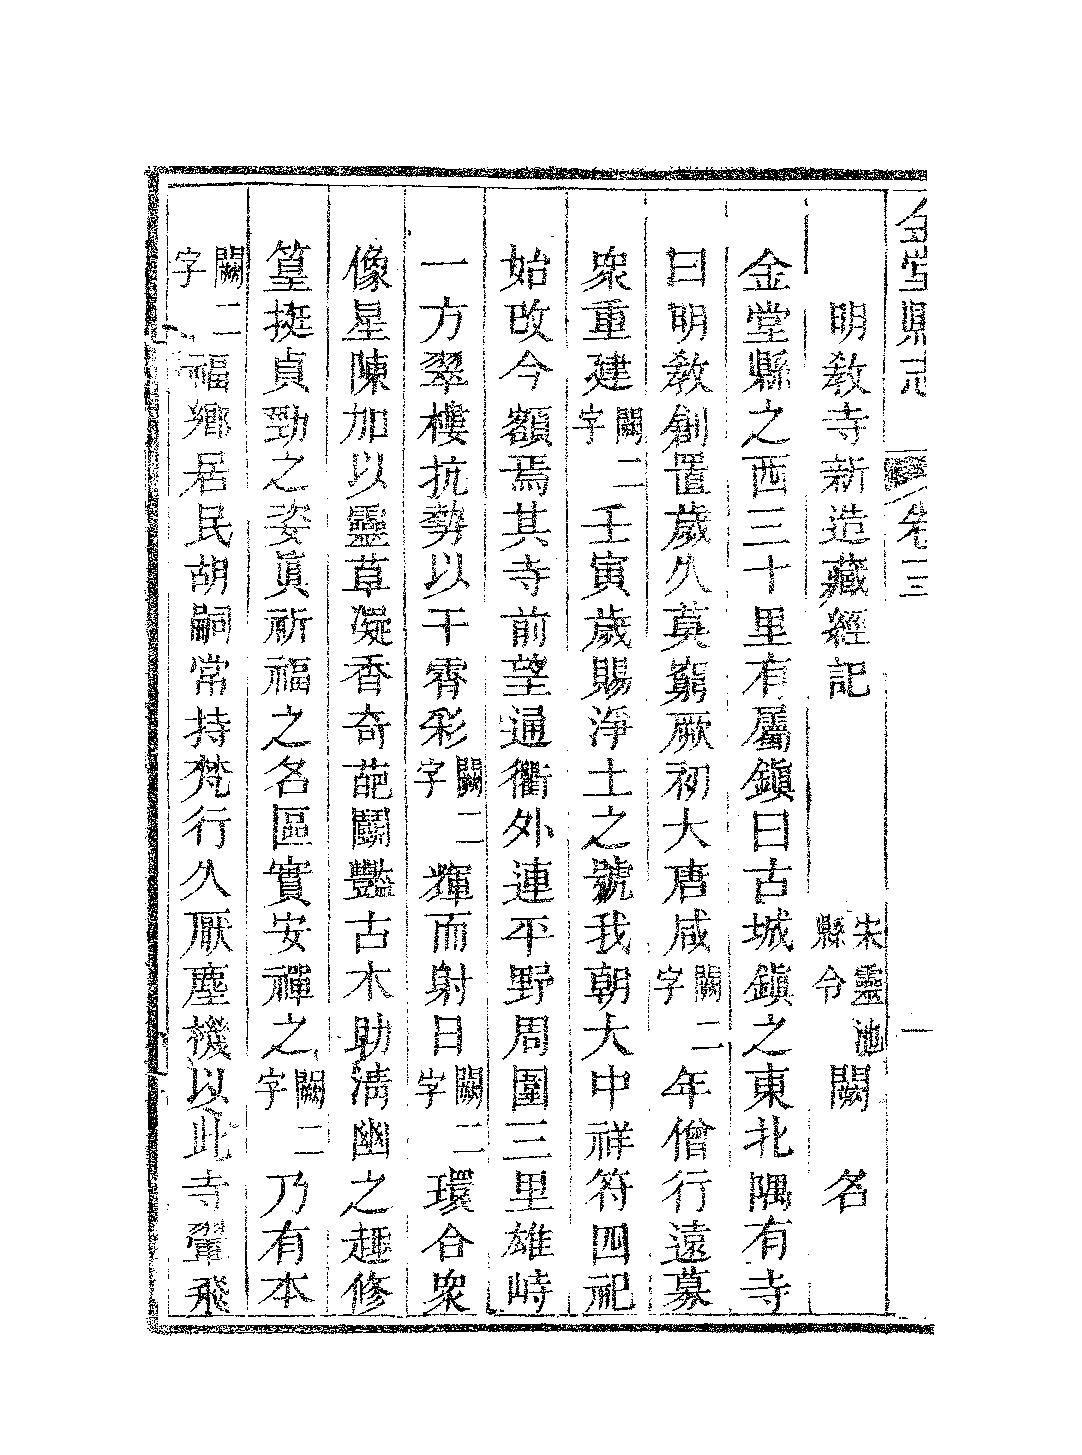 金堂縣志 卷三 一
明敎寺新造藏經記 宋靈池縣令闕名
金堂縣之西三十里有屬鎭曰古城鎭之東北隅有寺
曰明敎創置歲久莫窮厥初大唐咸闕二字年僧行遠募
衆重建闕二字壬寅歲賜淨土之號我朝大中祥符四祀
始改今額焉其寺前望通衢外連平野周圍三里雄峙
一方翠樓抗勢以干霄彩闕二字輝而射日闕二字環合衆
像星陳加以靈草凝香奇葩鬭豔古木助淸幽之趣修
篁挺貞勁之姿眞祈福之名區實安禪之闕二字乃有本
闕二字福鄉居民胡嗣常持梵行久厭塵機以此寺翬飛